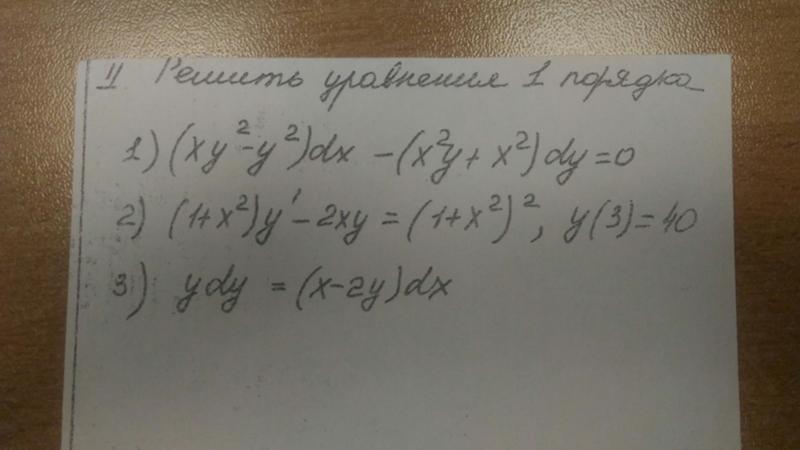 II Решить уравнения 1 порядка
1) (xy²-y²)dx - (x²y + x²)dy = 0
2) (1+x²)y' - 2xy = (1+x²)², y(3) = 40
3) ydy = (x-2y)dx